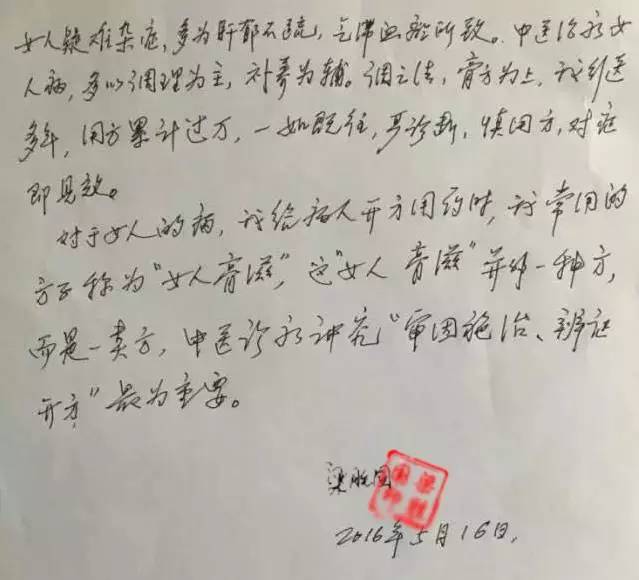 女人疑难杂症，多为肝郁不疏，气滞血瘀所致。中医治疗女
人病，多以调理为主，补养为辅。调之法，膏方为上，我行医
多年，用方累计过万，一如既往，平诊断，慎用方，对症
即见效。
对于女人的病，我给病人开方用药时，我常用的
方子称为“女人膏滋”，这“女人膏滋”并非一种方，
而是一类方，中医诊疗讲究“审因施治、辨证
开方”最为重要。
梁
2016年5月16日.